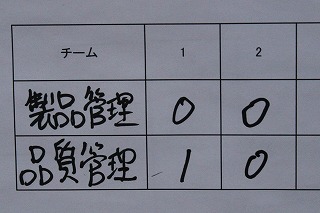 チーム 1 2
製品管理 0 0
品質管理 1 0